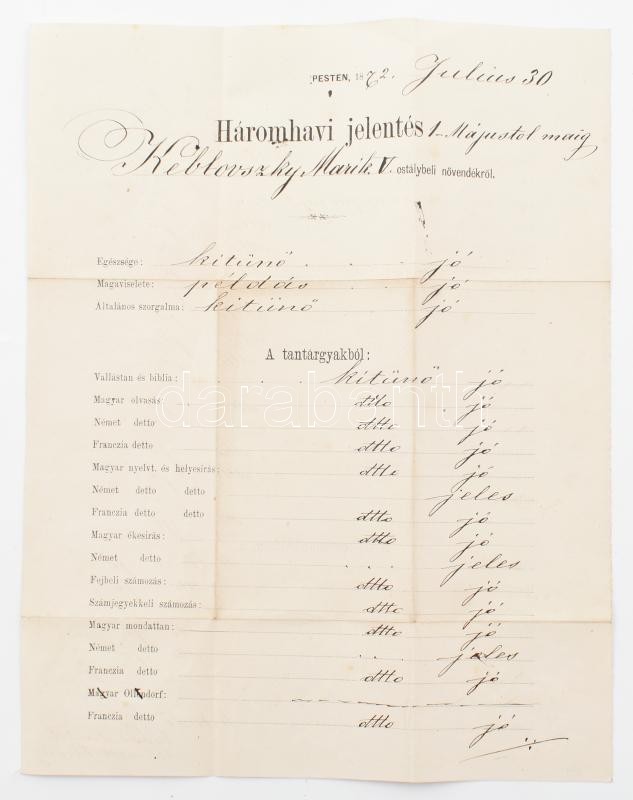 PESTEN, 1872. Julius 30
Háromhavi jelentés 1-Májustol maig
Keblovszky Marik. V. ostálybeli növendékről.
Egészsége: kitünő . . . jó
Magaviselete: példás . . . jó
Általános szorgalma: kitünő jó
A tantárgyakból:
Vallástan és biblia: . . . kitünő jó
Magyar olvasás: dtto jó
Német detto dtto jó
Franczia detto dtto jó
Magyar nyelvt. és helyesírás: dtto jó
Német detto detto jeles
Franczia detto detto dtto jó
Magyar ékesirás: dtto jó
Német detto . . . jeles
Fejbeli számozás: dtto jó
Számjegyekkeli számozás: dtto jó
Magyar mondattan: dtto jó
Német detto . . . jeles
Franczia detto dtto jó
Magyar Ollendorf:
Franczia detto dtto jó
darabanth